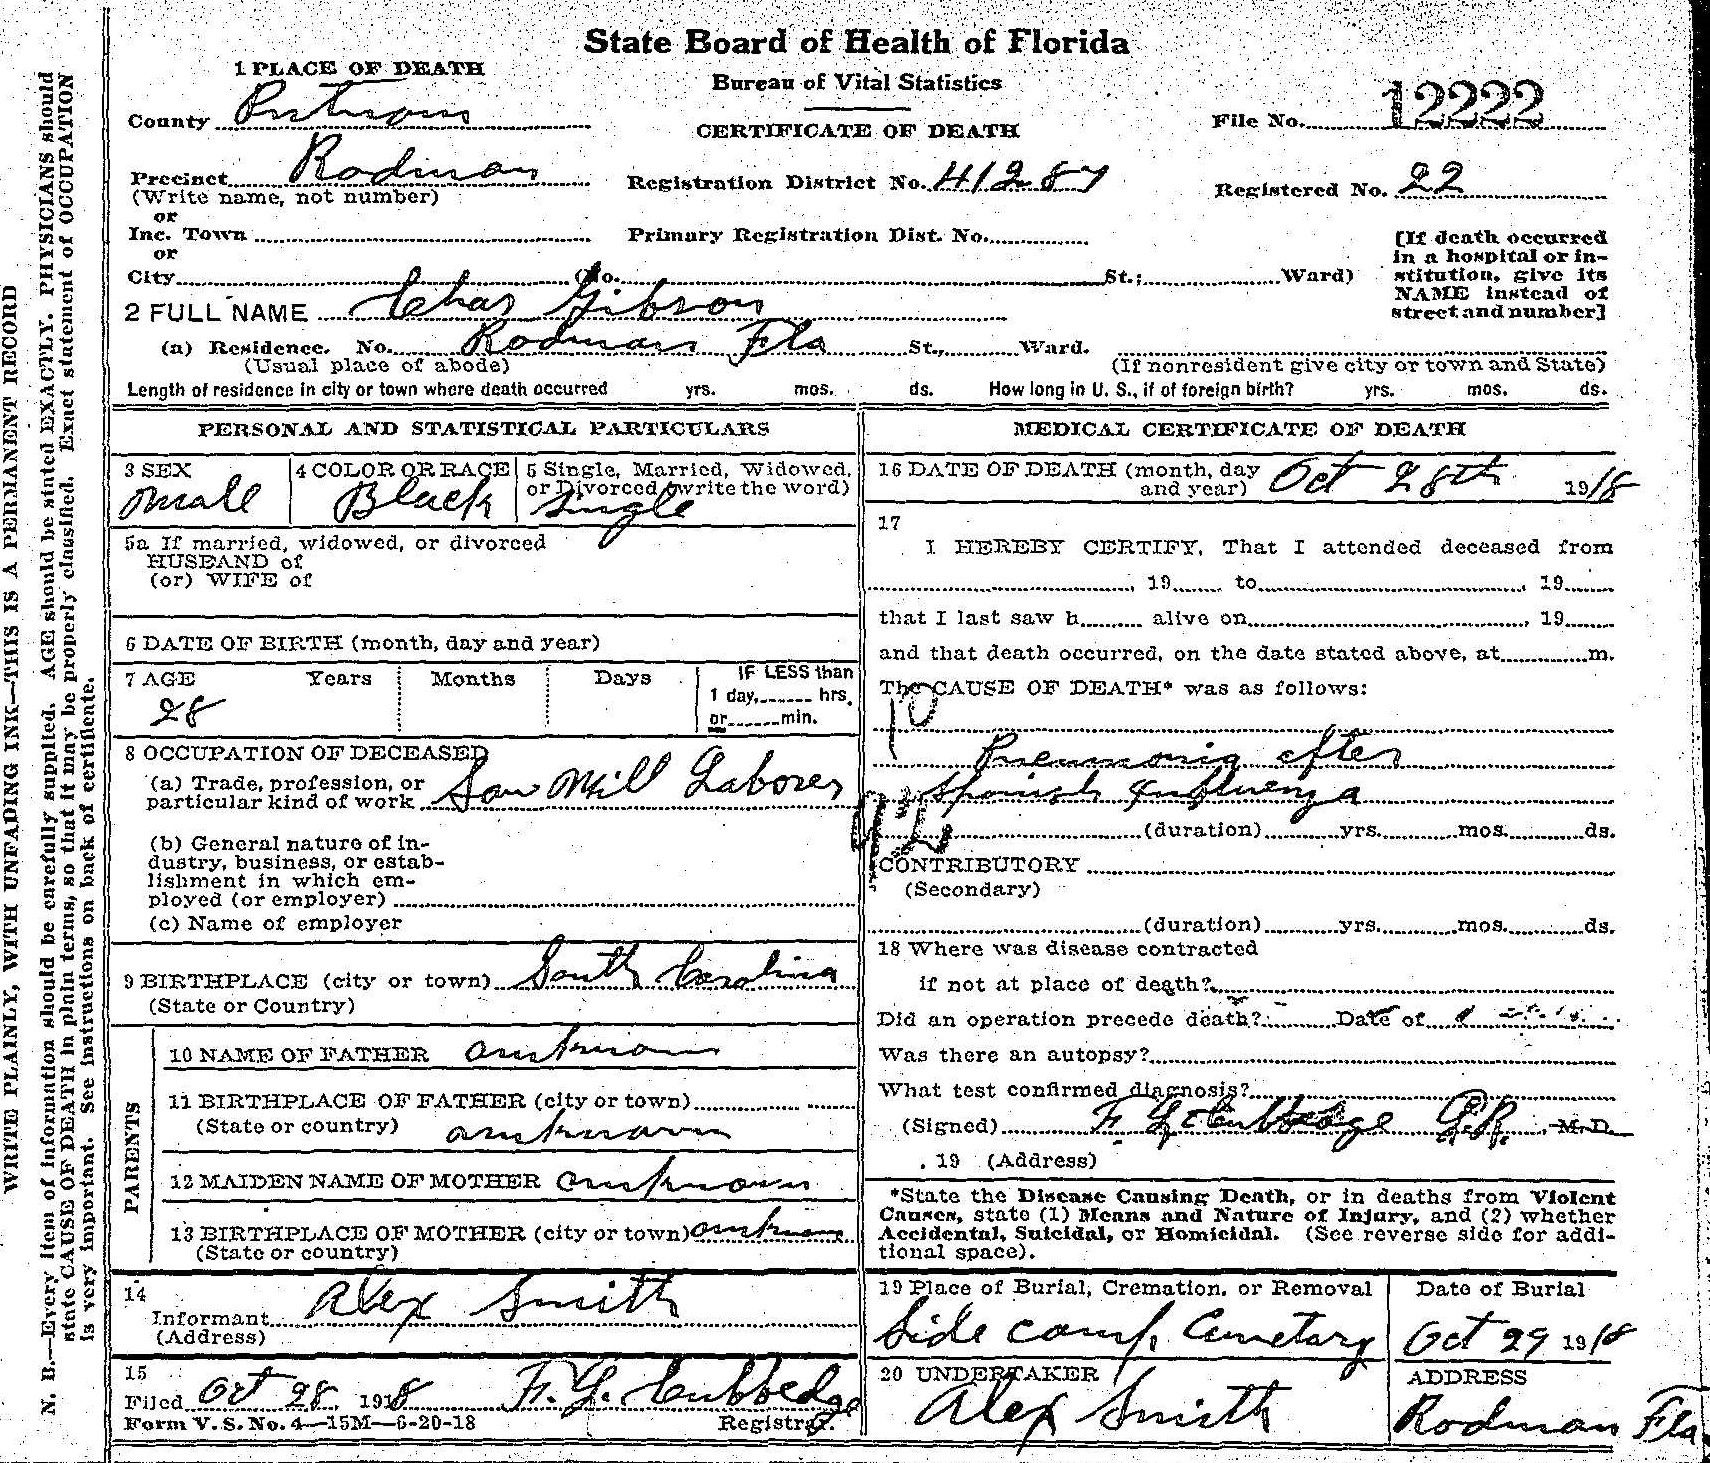 State Board of Health of Florida
Bureau of Vital Statistics
CERTIFICATE OF DEATH
1 PLACE OF DEATH
County Putnam
File No. 12222
Precinct Rodman
(Write name, not number)
Registration District No. 41287
Registered No. 22
or
Inc. Town
Primary Registration Dist. No.
or
City (No. St.; Ward)
[If death occurred
in a hospital or in-
stitution, give its
NAME instead of
street and number]
2 FULL NAME Chas Gibson
(a) Residence. No. Rodman Fla St., Ward.
(Usual place of abode)
(If nonresident give city or town and State)
Length of residence in city or town where death occurred yrs. mos. ds. How long in U. S., if of foreign birth? yrs. mos. ds.
PERSONAL AND STATISTICAL PARTICULARS
3 SEX
male
4 COLOR OR RACE
Black
5 Single, Married, Widowed,
or Divorced (write the word)
Single
5a If married, widowed, or divorced
HUSBAND of
(or) WIFE of
6 DATE OF BIRTH (month, day and year)
7 AGE Years Months Days
28
IF LESS than
1 day, hrs.
or min.
8 OCCUPATION OF DECEASED
(a) Trade, profession, or
particular kind of work Saw Mill Laborer
(b) General nature of in-
dustry, business, or estab-
lishment in which em-
ployed (or employer)
(c) Name of employer
9 BIRTHPLACE (city or town) South Carolina
(State or Country)
PARENTS
10 NAME OF FATHER unknown
11 BIRTHPLACE OF FATHER (city or town)
(State or country) unknown
12 MAIDEN NAME OF MOTHER unknown
13 BIRTHPLACE OF MOTHER (city or town) unknown
(State or country)
14
Informant Alex Smith
(Address)
15
Filed Oct 28, 1918 F. G. Cubbedge
Form V. S. No. 4—15M—6-20-18 Registrar.
MEDICAL CERTIFICATE OF DEATH
16 DATE OF DEATH (month, day
and year) Oct 28th 1918
17
I HEREBY CERTIFY, That I attended deceased from
, 19 , to , 19
that I last saw h alive on , 19
and that death occurred, on the date stated above, at m.
The CAUSE OF DEATH* was as follows:
10
Pneumonia after
Spanish Influenza
(duration) yrs. mos. ds.
CONTRIBUTORY
(Secondary)
(duration) yrs. mos. ds.
18 Where was disease contracted
if not at place of death?
Did an operation precede death? Date of
Was there an autopsy?
What test confirmed diagnosis?
(Signed) F. G. Cubbedge , M. D.
, 19 (Address)
*State the Disease Causing Death, or in deaths from Violent
Causes, state (1) Means and Nature of Injury, and (2) whether
Accidental, Suicidal, or Homicidal. (See reverse side for addi-
tional space).
19 Place of Burial, Cremation, or Removal
Side camp Cemetary
Date of Burial
Oct 29 1918
20 UNDERTAKER
Alex Smith
ADDRESS
Rodman Fla
WRITE PLAINLY, WITH UNFADING INK—THIS IS A PERMANENT RECORD
N. B.—Every item of information should be carefully supplied. AGE should be stated EXACTLY. PHYSICIANS should
state CAUSE OF DEATH in plain terms, so that it may be properly classified. Exact statement of OCCUPATION
is very important. See instructions on back of certificate.